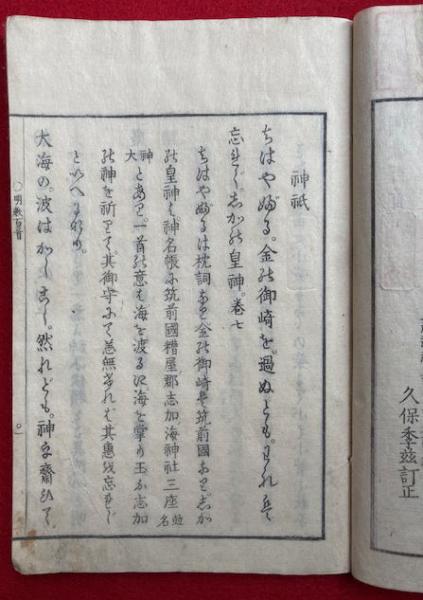 久保季茲訂正
神祇
ちはやぶる。金能御崎を。過ぬとも。われは
忘れじ。志か能皇神。卷七
ちはやぶるは枕詞なり金能御崎は筑前國なり志か
能皇神は神名帳に筑前國糟屋郡志加海神社三座並名
神大とあり。一首能意は海を渡るに海を掌り玉ふ志加
能神を祈りて。其御守にて恙無ければ其惠を忘れじ
といへるなり。
大海の。波はかしこし。然れども。神を齋ひて
○明教百首